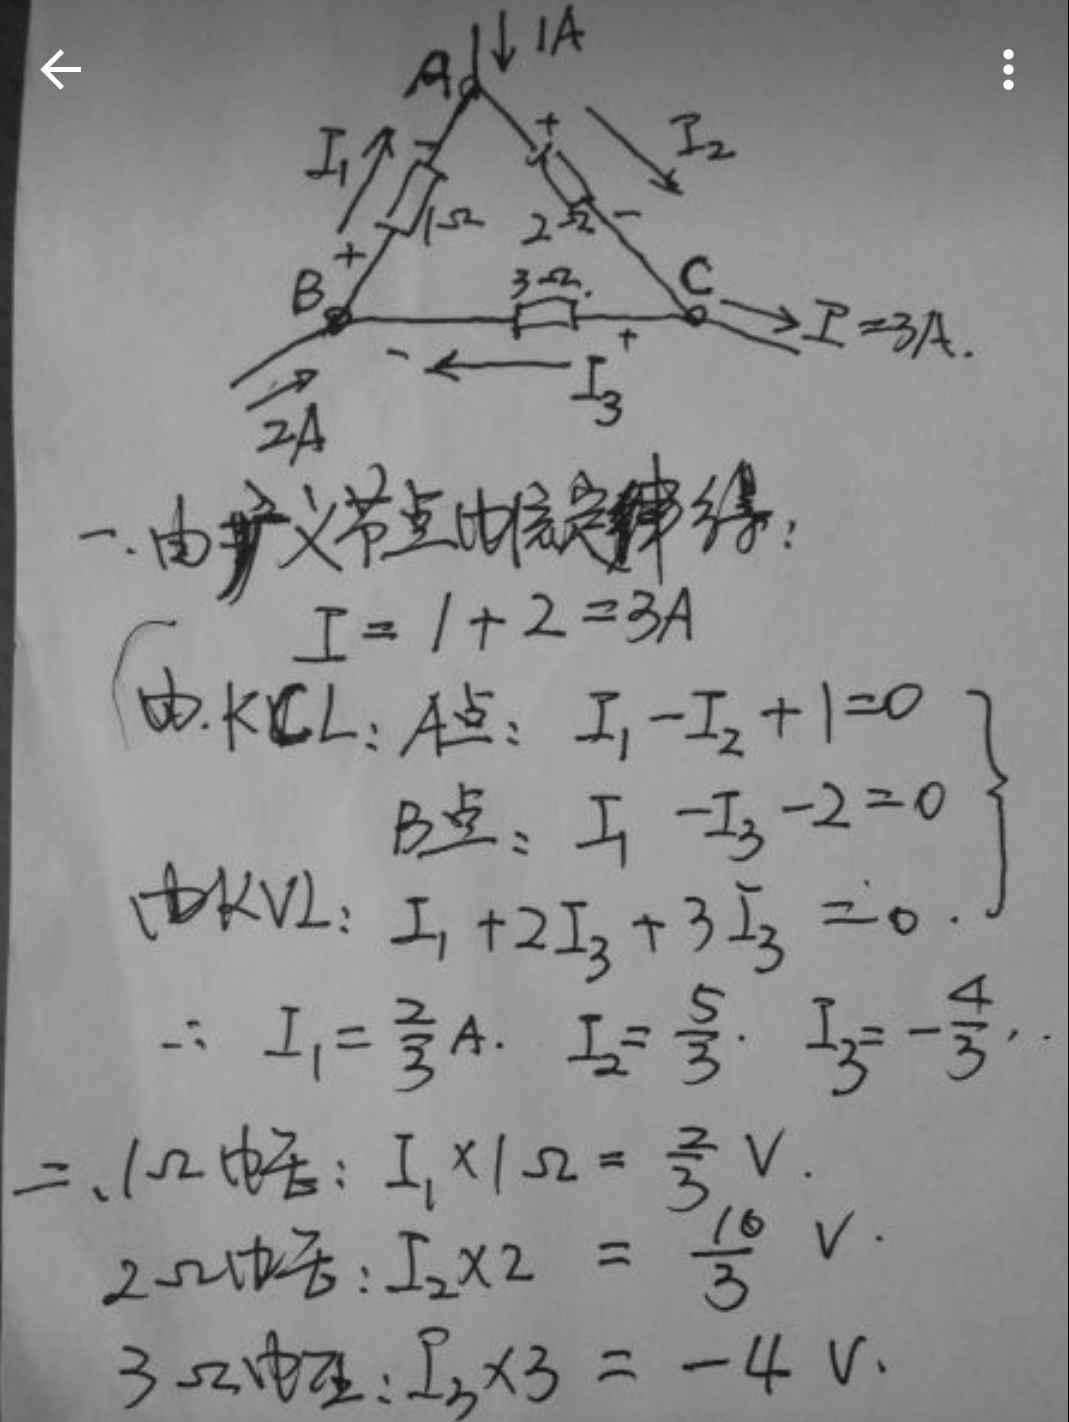 1A
A
I₁
+
I₂
-
1Ω
2Ω
-
+
B
3Ω.
C
I=3A.
-
+
I₃
2A
一.由扩义节点电流定律得:
I=1+2=3A
由.KCL: A点: I₁-I₂+1=0
B点: I₁ -I₃-2=0
由KVL: I₁+2I₃+3I₃=0.
∴ I₁=2/3 A. I₂=5/3. I₃=-4/3,..
二、1Ω电压: I₁×1Ω=2/3 V.
2Ω电压: I₂×2 = 10/3 V.
3Ω电压: I₃×3 = -4 V.